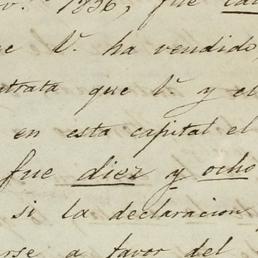 1836, fue
ue V. ha vendido,
ntrata que V. y el
en esta capital el
fue diez y ocho
si la declaracion
rse a favor del